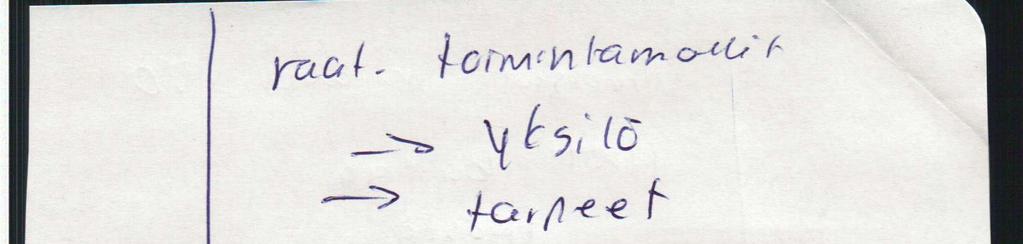 raat. toimintamallit
→ Yksilö
→ tarpeet